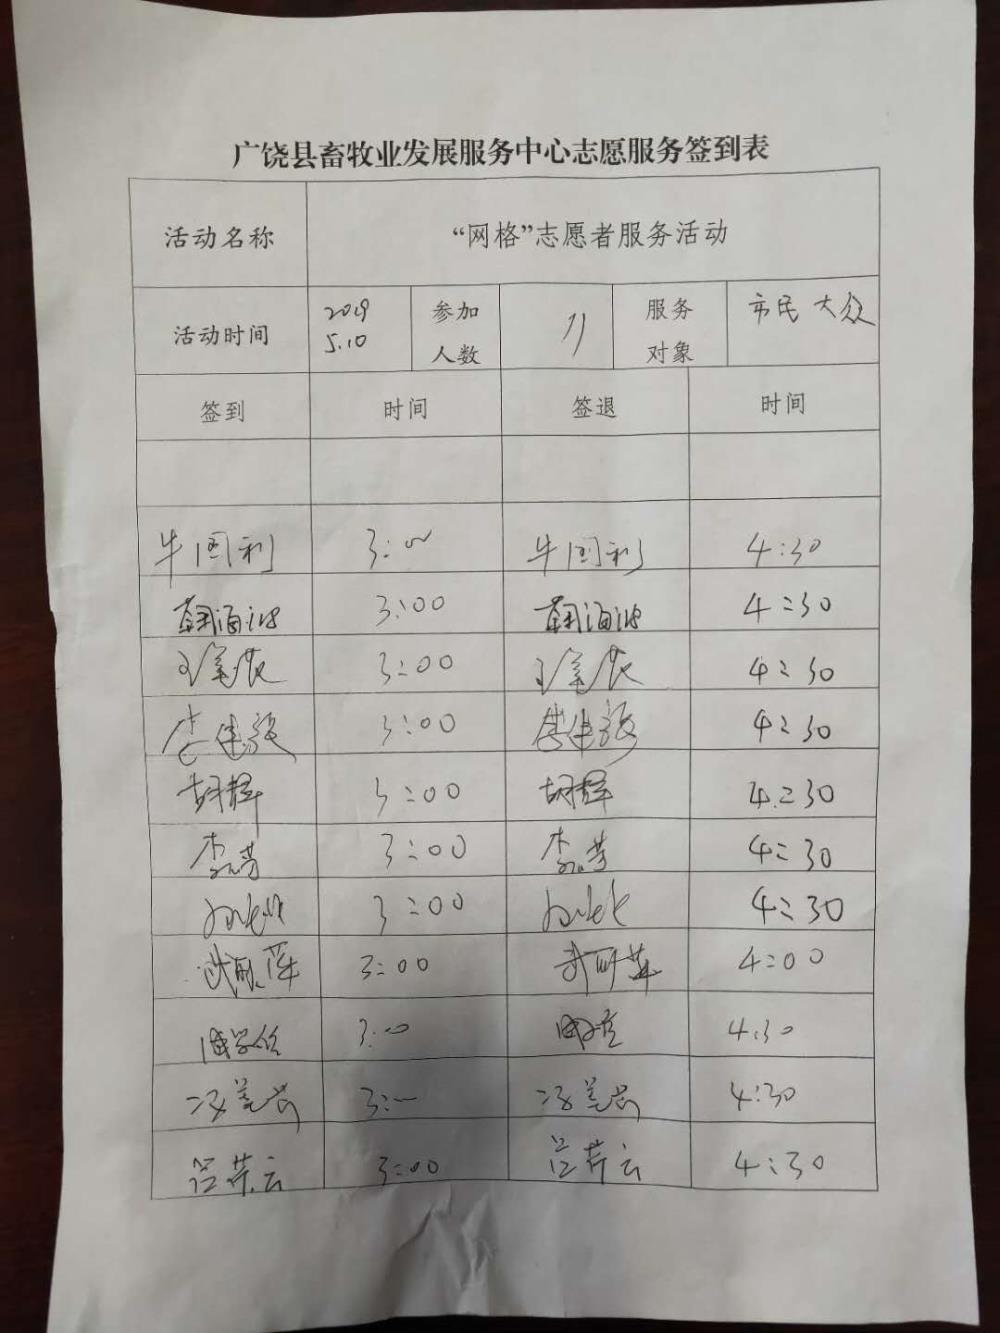 广饶县畜牧业发展服务中心志愿服务签到表
活动名称 “网格”志愿者服务活动
活动时间 2019 5.10 参加人数 11 服务对象 市民大众
签到 时间 签退 时间
牛国利 3:00 牛国利 4:30
3:00 4:30
3:00 4:30
3:00 4:30
胡辉 3:00 胡辉 4:30
李芳 3:00 李芳 4:30
3:00 4:30
武丽萍 3:00 武丽萍 4:00
3:00 4:30
冯美芸 3:00 冯美芸 4:30
吕荐云 3:00 吕荐云 4:30